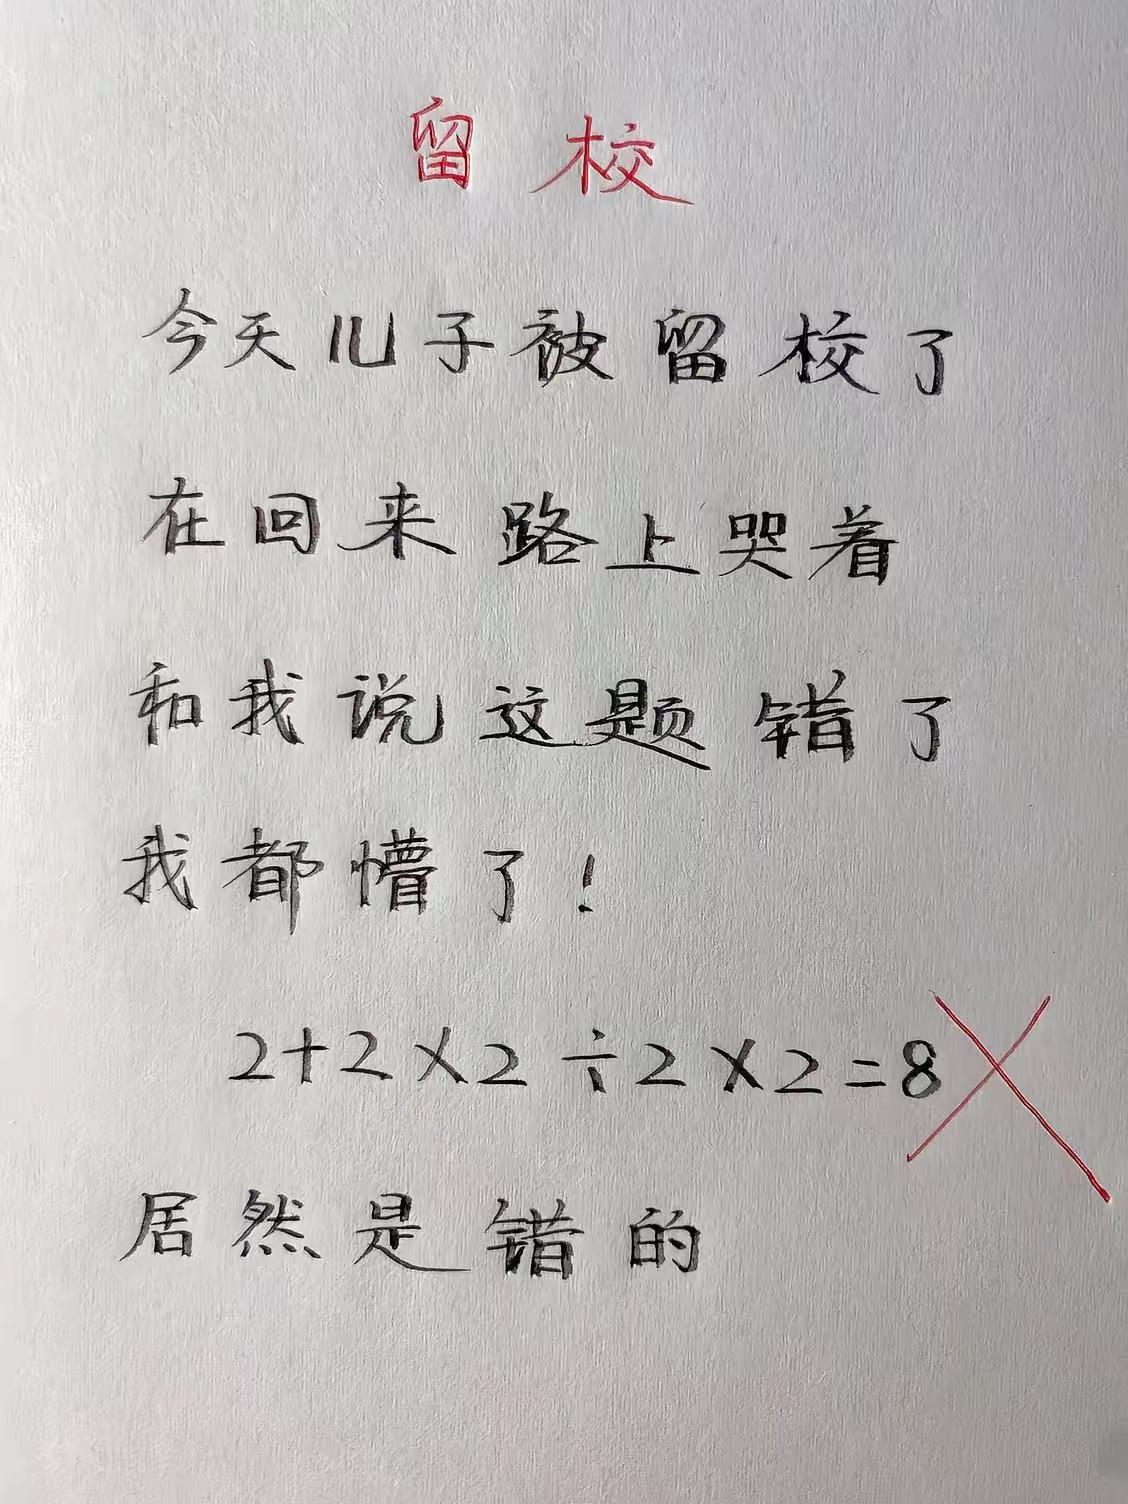 留校
今天儿子被留校了
在回来路上哭着
和我说这题错了
我都懵了！
2+2×2÷2×2=8
居然是错的